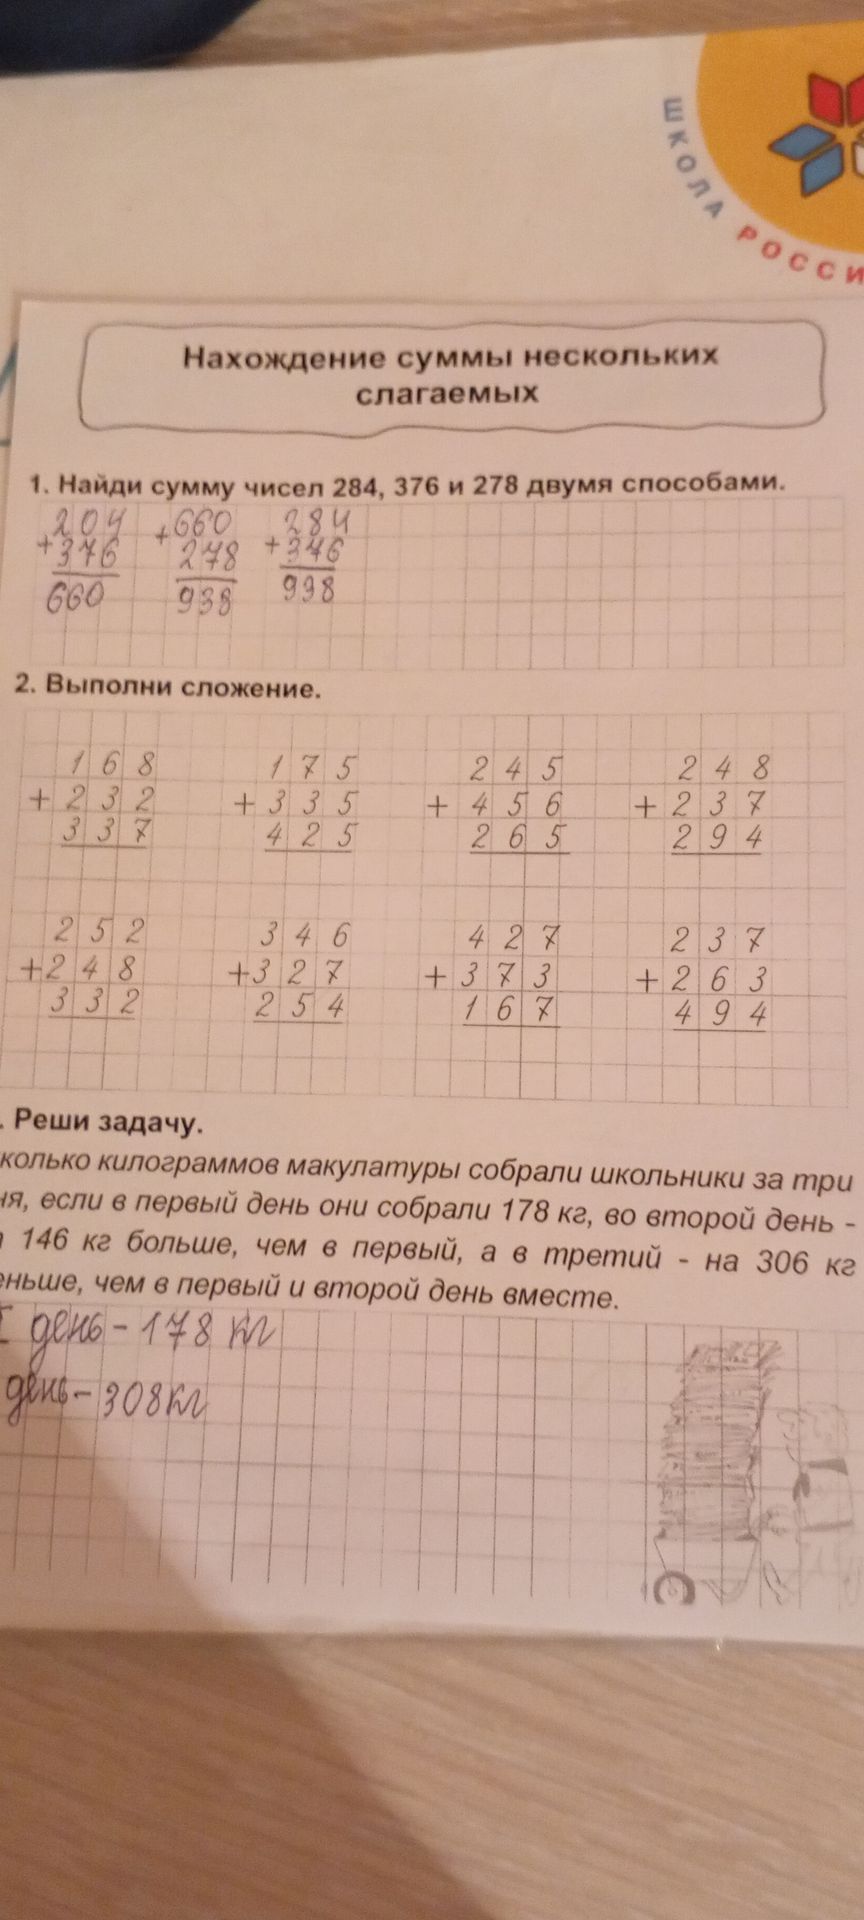 ШКОЛА РОССИ
Нахождение суммы нескольких
слагаемых
1. Найди сумму чисел 284, 376 и 278 двумя способами.
204 +660 284
+376 278 +376
660 938 938
2. Выполни сложение.
168 175 245 248
+232 +335 +456 +237
337 425 265 294
252 346 427 237
+248 +327 +373 +263
332 254 167 494
. Реши задачу.
колько килограммов макулатуры собрали школьники за три
ня, если в первый день они собрали 178 кг, во второй день -
а 146 кг больше, чем в первый, а в третий - на 306 кг
еньше, чем в первый и второй день вместе.
I день - 178 кг
день - 308 кг